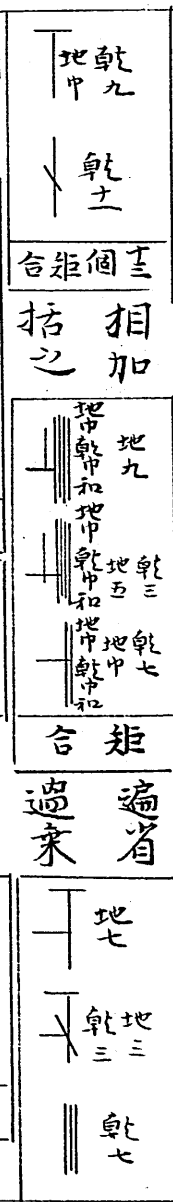 乾九
地巾
乾十一
十三個矩合
相加
括之
地九
地巾乾巾和
乾三
地五
地巾乾巾和
乾七
地巾
地巾乾巾和
矩合
遍省
過乗
地七
地三
乾三
乾七